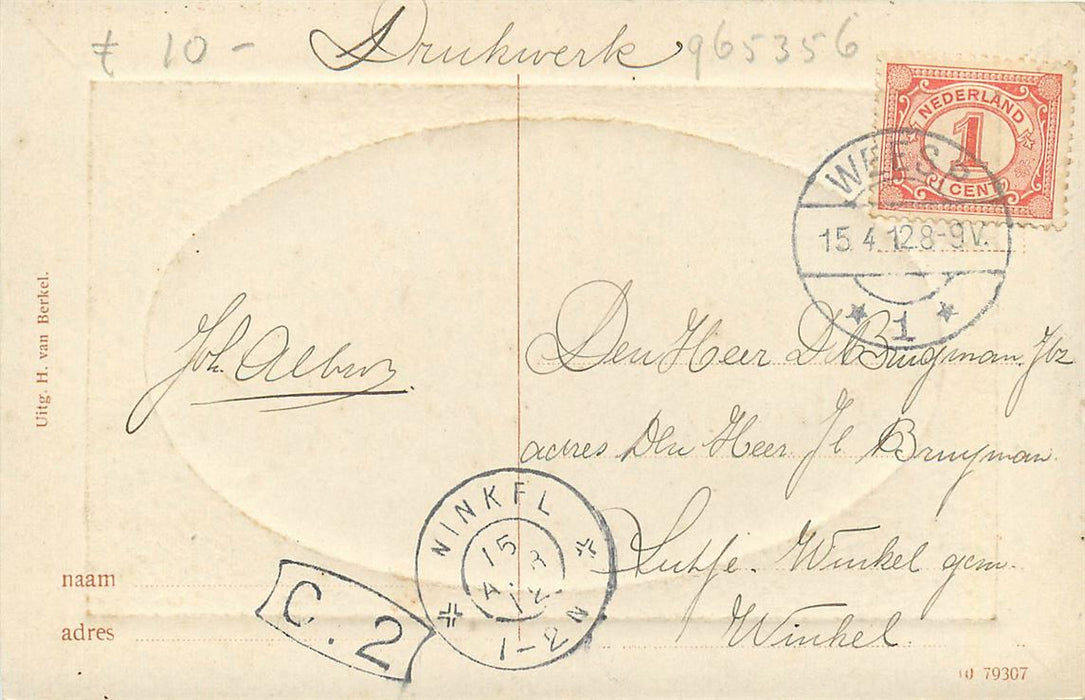 € 10 -
Drukwerk
965356
NEDERLAND
1
1 CENT
WEESP
15.4.12.8-9V.
1
Uitg. H. van Berkel.
Joh. Albers
Den Heer D Brugman Jbz
adres Den Heer Jb Brugman
Lutje Winkel gem.
Winkel.
WINKEL
15
4
12
1-2N
C.2
naam
adres
10 79307